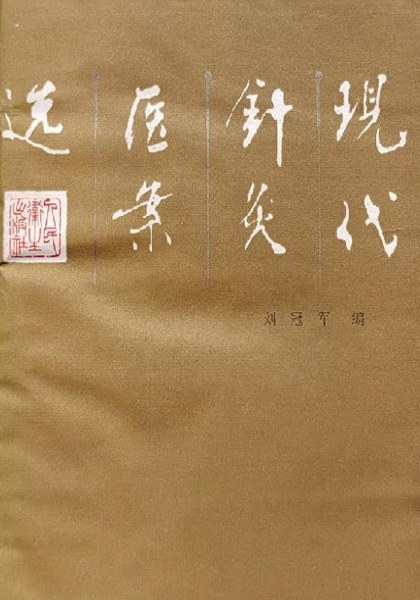 現代
針灸
医案
选
人民卫生出版社
刘冠军 编